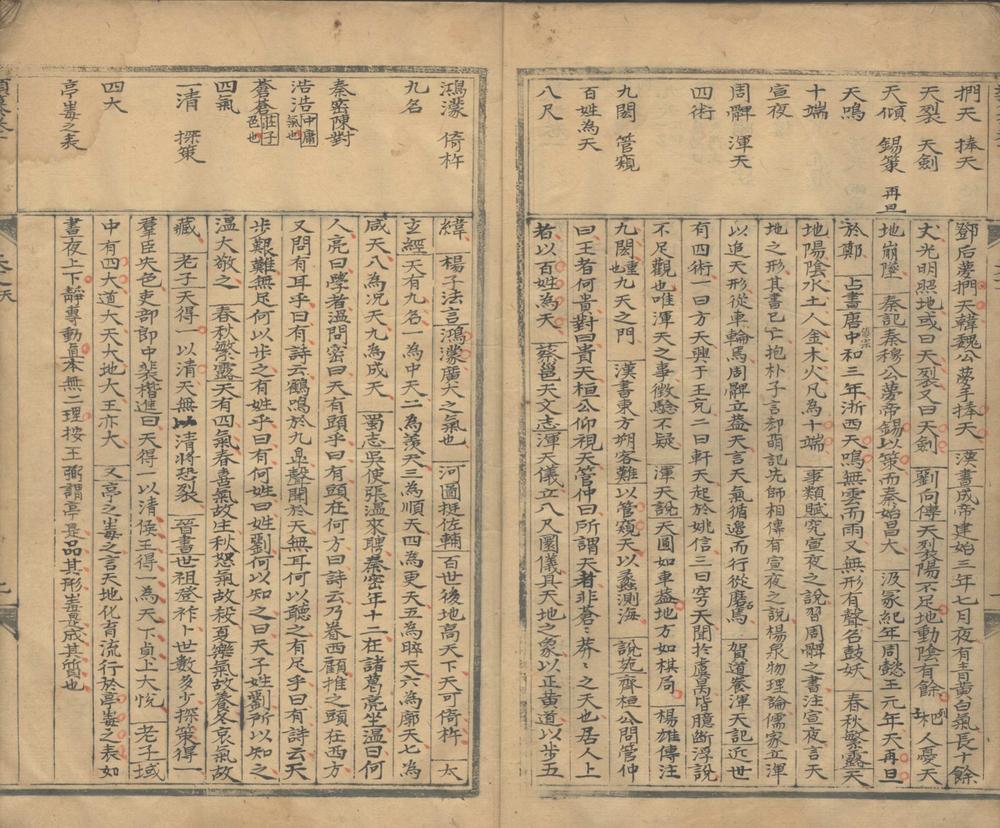 捫天 捧天
天裂 天劍
天傾 錫策 再旦
天鳴
十端
宣夜
周髀 渾天
四術
九閎 管窺
百姓為天
八尺
鄧后夢捫天韓魏公夢手捧天 漢書成帝建始三年七月夜有青黃白氣長十餘
丈光明照地或曰天裂又曰天劍 劉向傳天裂陽不足地動陰有餘 列 杞人憂天
地崩墜 秦記秦穆公夢帝錫以策而秦始昌大 汲冢紀年周懿王元年天再旦
於鄭 占書唐中和三年浙西天鳴無雲而雨又無形有聲名鼓妖 春秋繁露天
地陽陰水土人金木火凡為十端 事類賦究宣夜之說習周髀之書注宣夜言天
地之形其書已亡抱朴子言却萌記先師相傳有宣夜之說楊泉物理論儒家立渾
以追天形從車輪馬周髀立蓋天言天氣循邊而行從磨馬 賀道養渾天記近世
有四術一曰方天興于王兄二曰軒天起於姚信三曰穹天聞於虞昺皆臆斷浮說
不足觀也唯渾天之事徵驗不疑 渾天說天圓如車蓋地方如棋局 楊雄傳注
九閎重也九天之門 漢書東方朔客難以管窺天以蠡測海 說苑齊桓公問管仲
曰王者何貴對曰貴天桓公仰視天管仲曰所謂天者非蒼〻莽〻之天也居人上
者以百姓為天 蔡邕天文志渾天儀立八尺圓儀具天地之象以正黃道以步五
鴻濛 倚杵
九名
秦密陳對
浩浩中庸氣也
蒼蒼莊子色也
四氣
一清 探策
四大
亭毒之表
緯 楊子法言鴻濛廣大之氣也 河圖挺佐輔百世後地高天下天可倚杵 太
玄經天有九名一為中天二為羨天三為順天四為更天五為睟天六為廓天七為
咸天八為況天九為成天 蜀志吳使張溫來聘秦密年十一在諸葛亮坐溫曰何
人亮曰學者溫問密曰天有頭乎曰有頭在何方曰詩云乃眷西顧推之頭在西方
又問有耳乎曰有詩云鶴鳴於九臯聲聞於天無耳何以聽之有足乎曰有詩云天
步艱難無足何以步之有姓乎曰有何姓曰姓劉何以知之曰天子姓劉所以知之
溫大敬之 春秋繁露天有四氣春喜氣故生秋怒氣故殺夏樂氣故養冬哀氣故
藏 老子天得一以清天無以清將恐裂 晉書世祖登祚卜世數多少探策得一
羣臣失色吏部郎中裴楷進曰天得一以清侯王得一為天下貞上大悅 老子域
中有四大道大天大地大王亦大 又亭之毒之言天地化育流行於亭毒之表如
晝夜上下靜專動直本無二理按王弼謂亭是品其形毒是成其質也